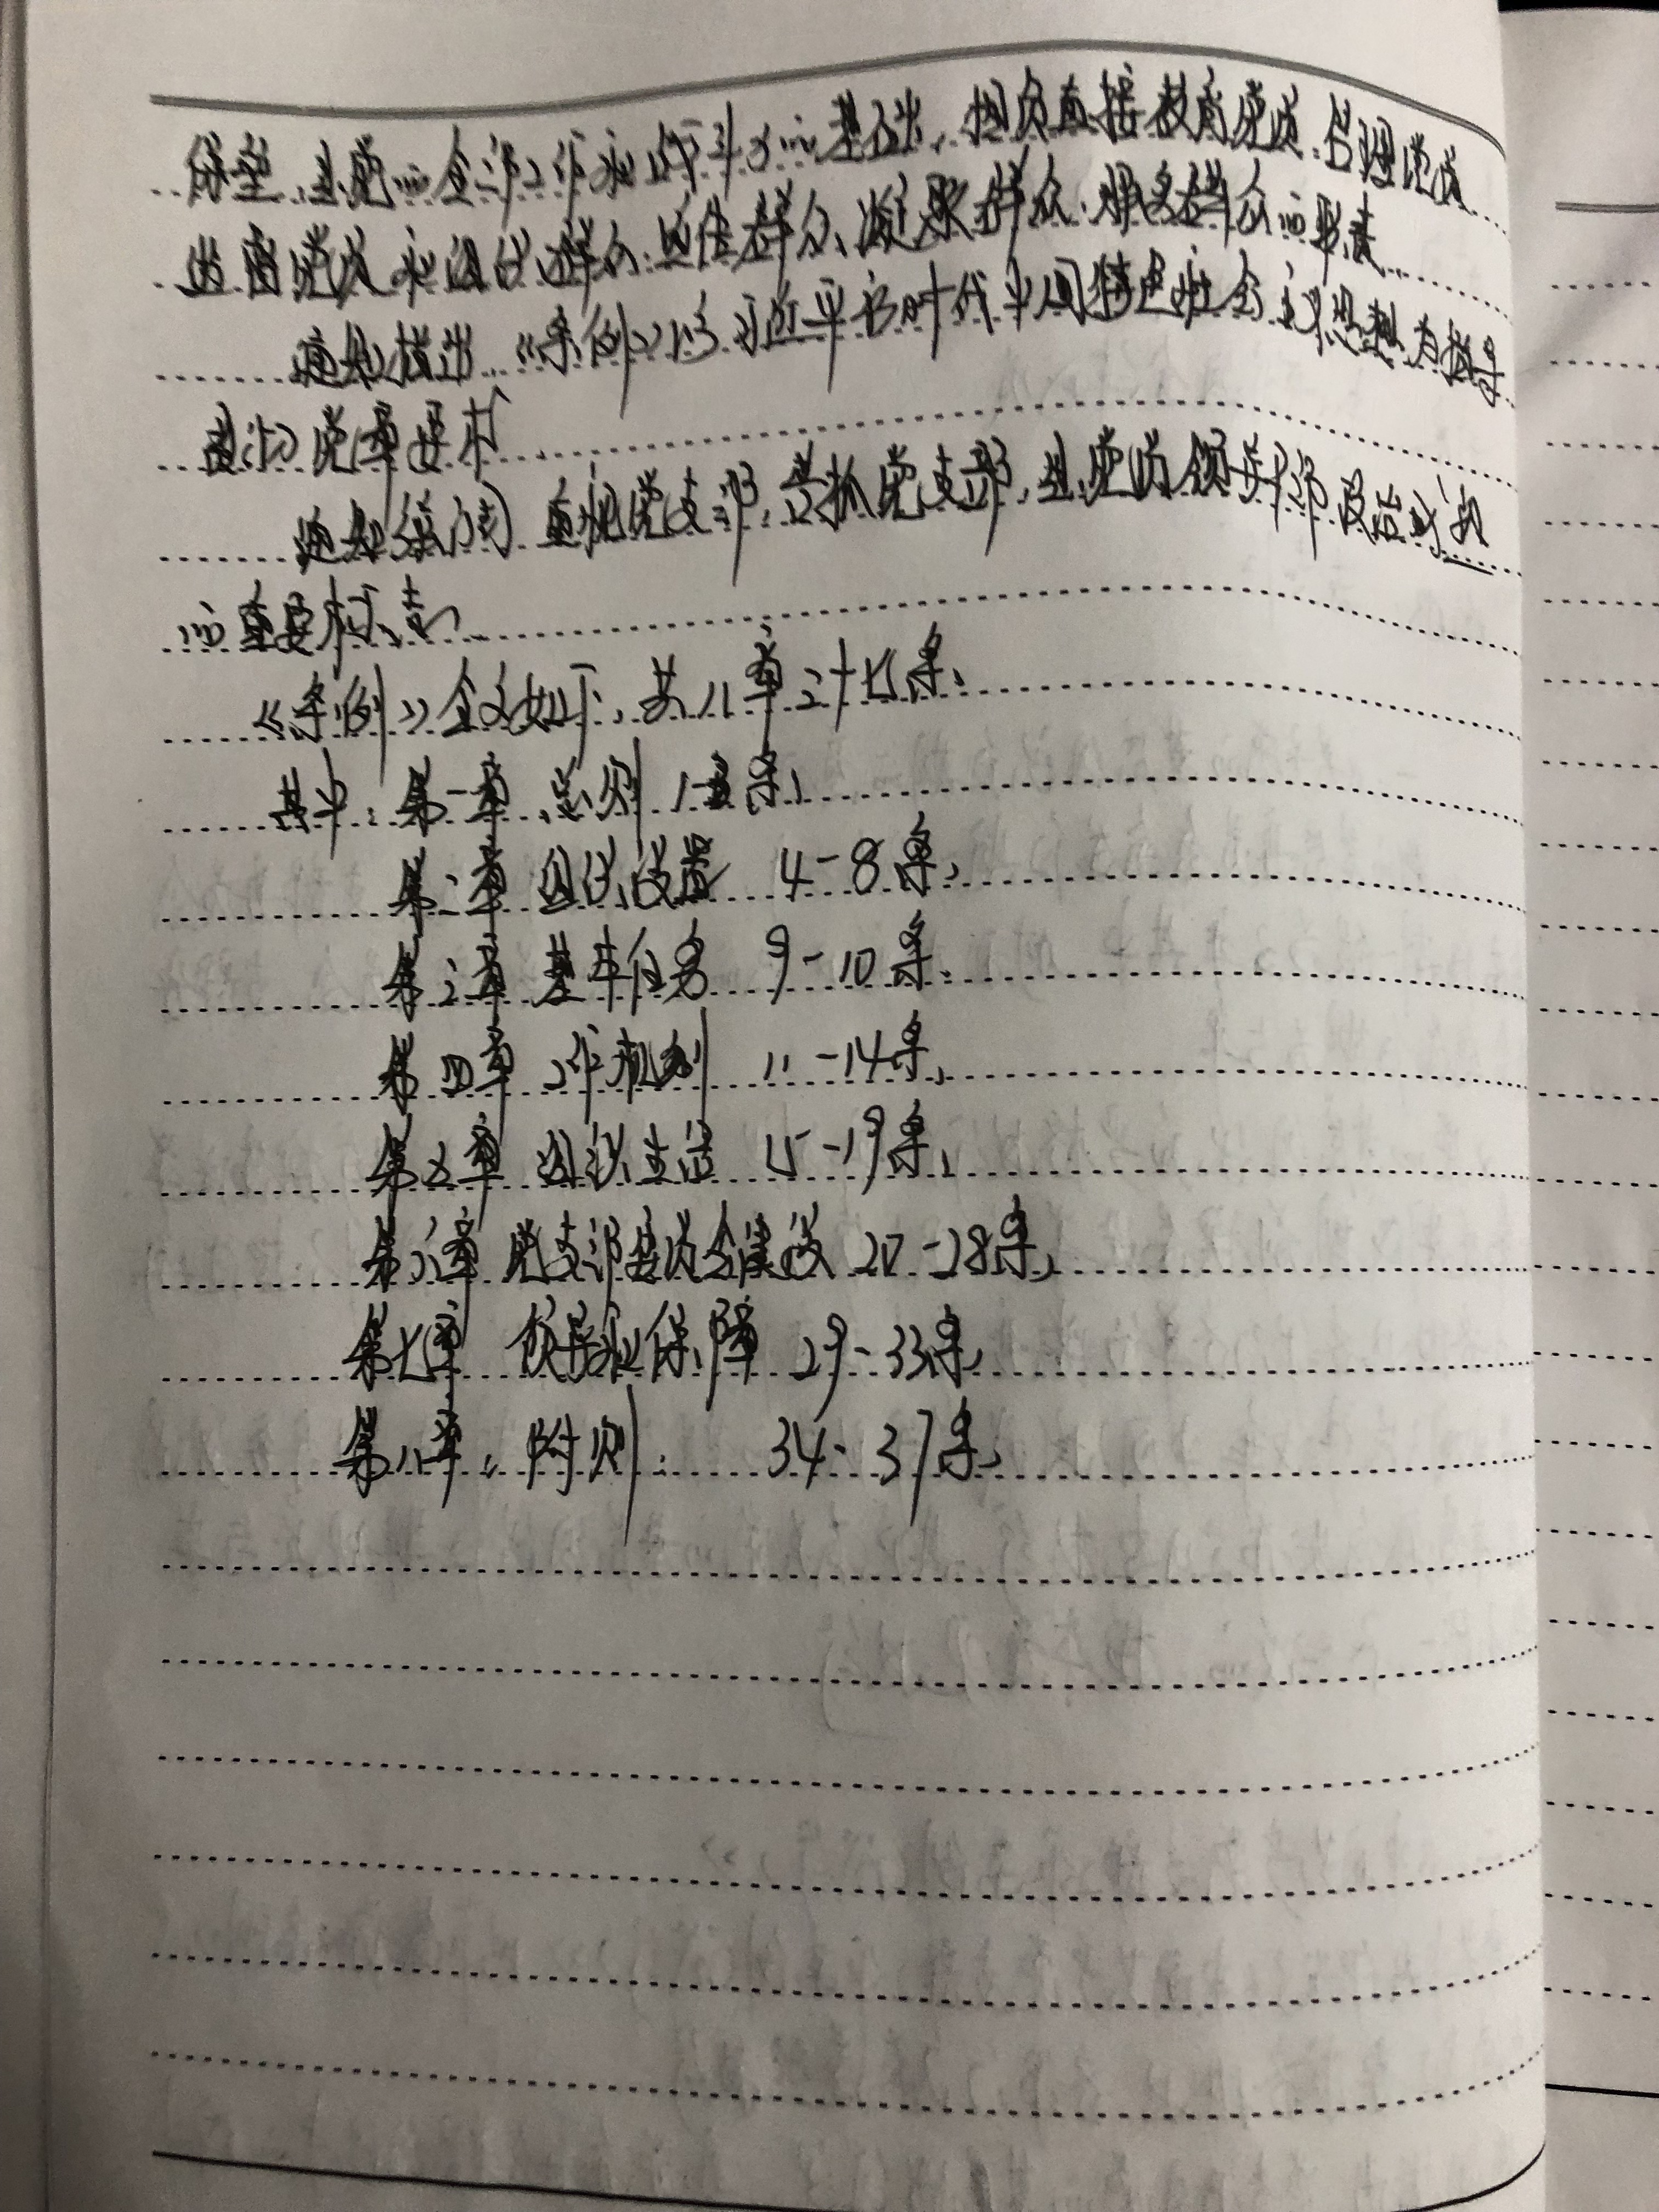 保垒,是党的全部工作和战斗力的基础,担负直接教育党员、管理党员
监督党员和组织群众、宣传群众、凝聚群众、服务群众的职责
通知指出,《条例》以习近平新时代中国特色社会主义思想为指导
贯彻党章要求
通知强调 重视党支部、善抓党支部,是党员领导干部政治成熟
的重要标志
《条例》全文如下,共八章三十七条、
其中:第一章 总则 1-3条、
第二章 组织设置 4-8条、
第三章 基本任务 9-10条、
第四章 工作机制 11-14条、
第五章 组织生活 15-19条、
第六章 党支部委员会建设 20-28条、
第七章 领导和保障 29-33条、
第八章、附则 34-37条、